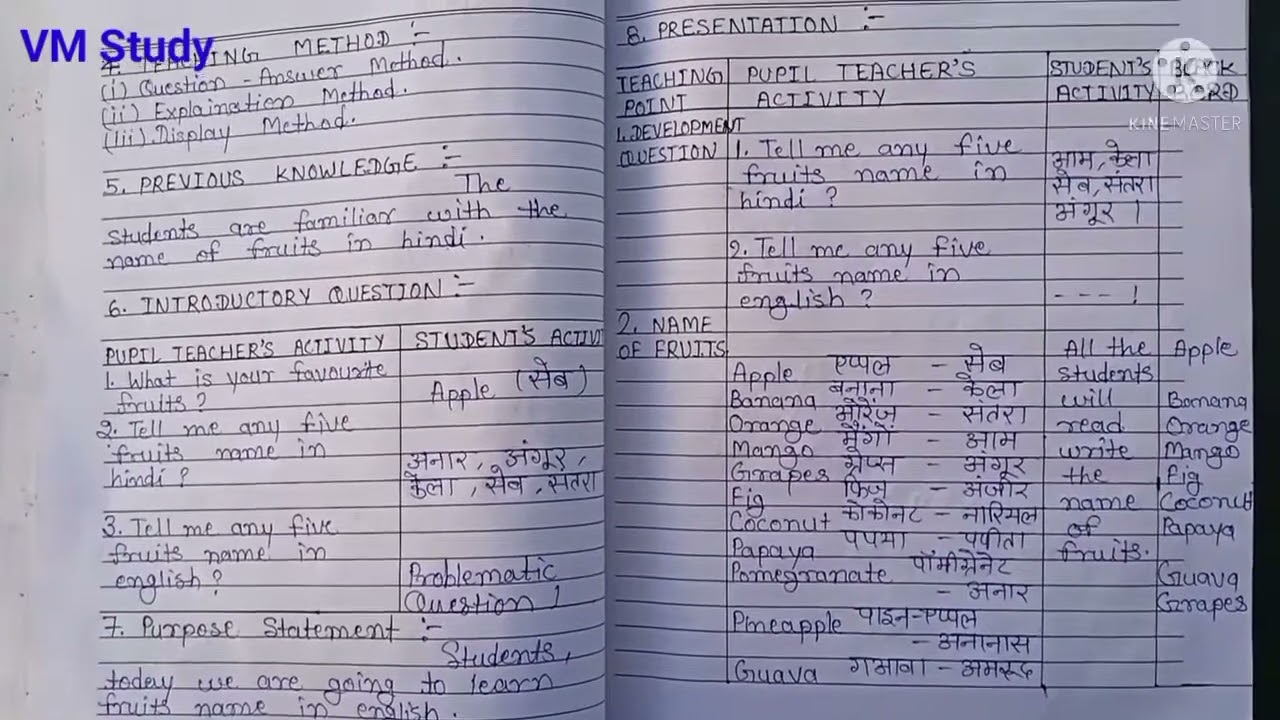 VM Study
4. TEACHING METHOD :-
(i) Question - Answer Method.
(ii) Explaination Method.
(iii) Display Method.
5. PREVIOUS KNOWLEDGE :-
The
students are familiar with the
name of fruits in hindi.
6. INTRODUCTORY QUESTION :-
PUPIL TEACHER'S ACTIVITY STUDENT'S ACTIVI
1. What is your favourite
fruits?
Apple (सेब)
2. Tell me any five
fruits name in
hindi?
अनार, अंगूर,
केला, सेब, संतरा
3. Tell me any five
fruits name in
english?
Problematic
Question।
7. Purpose Statement :-
Students,
today we are going to learn
fruits name in english.
8. PRESENTATION :-
TEACHING POINT
PUPIL TEACHER'S ACTIVITY
STUDENT'S ACTIVITY
KINEMASTER
1. DEVELOPMENT
QUESTION
1. Tell me any five
fruits name in
hindi?
आम, केला
सेब, संतरा
अंगूर।
2. Tell me any five
fruits name in
english?
- - - ।
2. NAME
OF FRUITS
Apple एप्पल - सेब
Banana बनाना - केला
Orange ओरेंज - संतरा
Mango मैंगो - आम
Grapes ग्रेप्स - अंगूर
Fig फिज - अंजीर
Coconut कोकोनट - नारियल
Papaya पपया - पपीता
Pomegranate पॉमीग्रेनेट
- अनार
Pineapple पाइन-एप्पल
- अनानास
Guava गआवा - अमरूद
All the
students
will
read
write
the
name
of
fruits.
Apple
Banana
Orange
Mango
Fig
Coconut
Papaya
Guava
Grapes